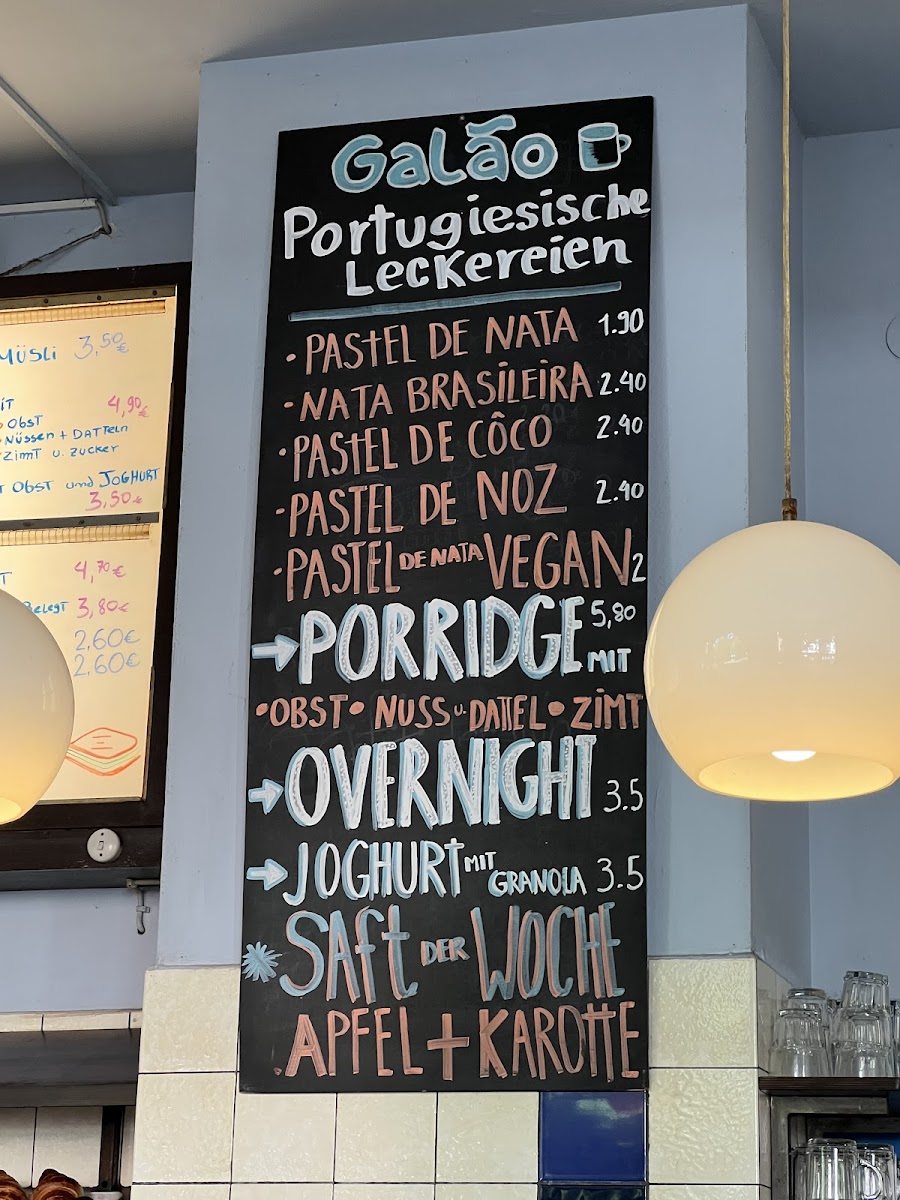 Galão
Portugiesische
Leckereien
• PASTEL DE NATA 1.90
• NATA BRASILEIRA 2.40
• PASTEL DE CÔCO 2.40
• PASTEL DE NOZ 2.40
• PASTEL DE NATA VEGAN 2
→ PORRIDGE 5,80 MIT
• OBST • NUSS u. DATTEL • ZIMT
→ OVERNIGHT 3.5
→ JOGHURT MIT GRANOLA 3.5
SAFT DER WOCHE
. APFEL + KAROTTE
MÜSLI 3,50€
4,90€
OBST
NÜSSEN + DATTELN
ZIMT u. ZUCKER
OBST und JOGHURT
3,50€
4,70€
BELEGT 3,80€
2,60€
2,60€